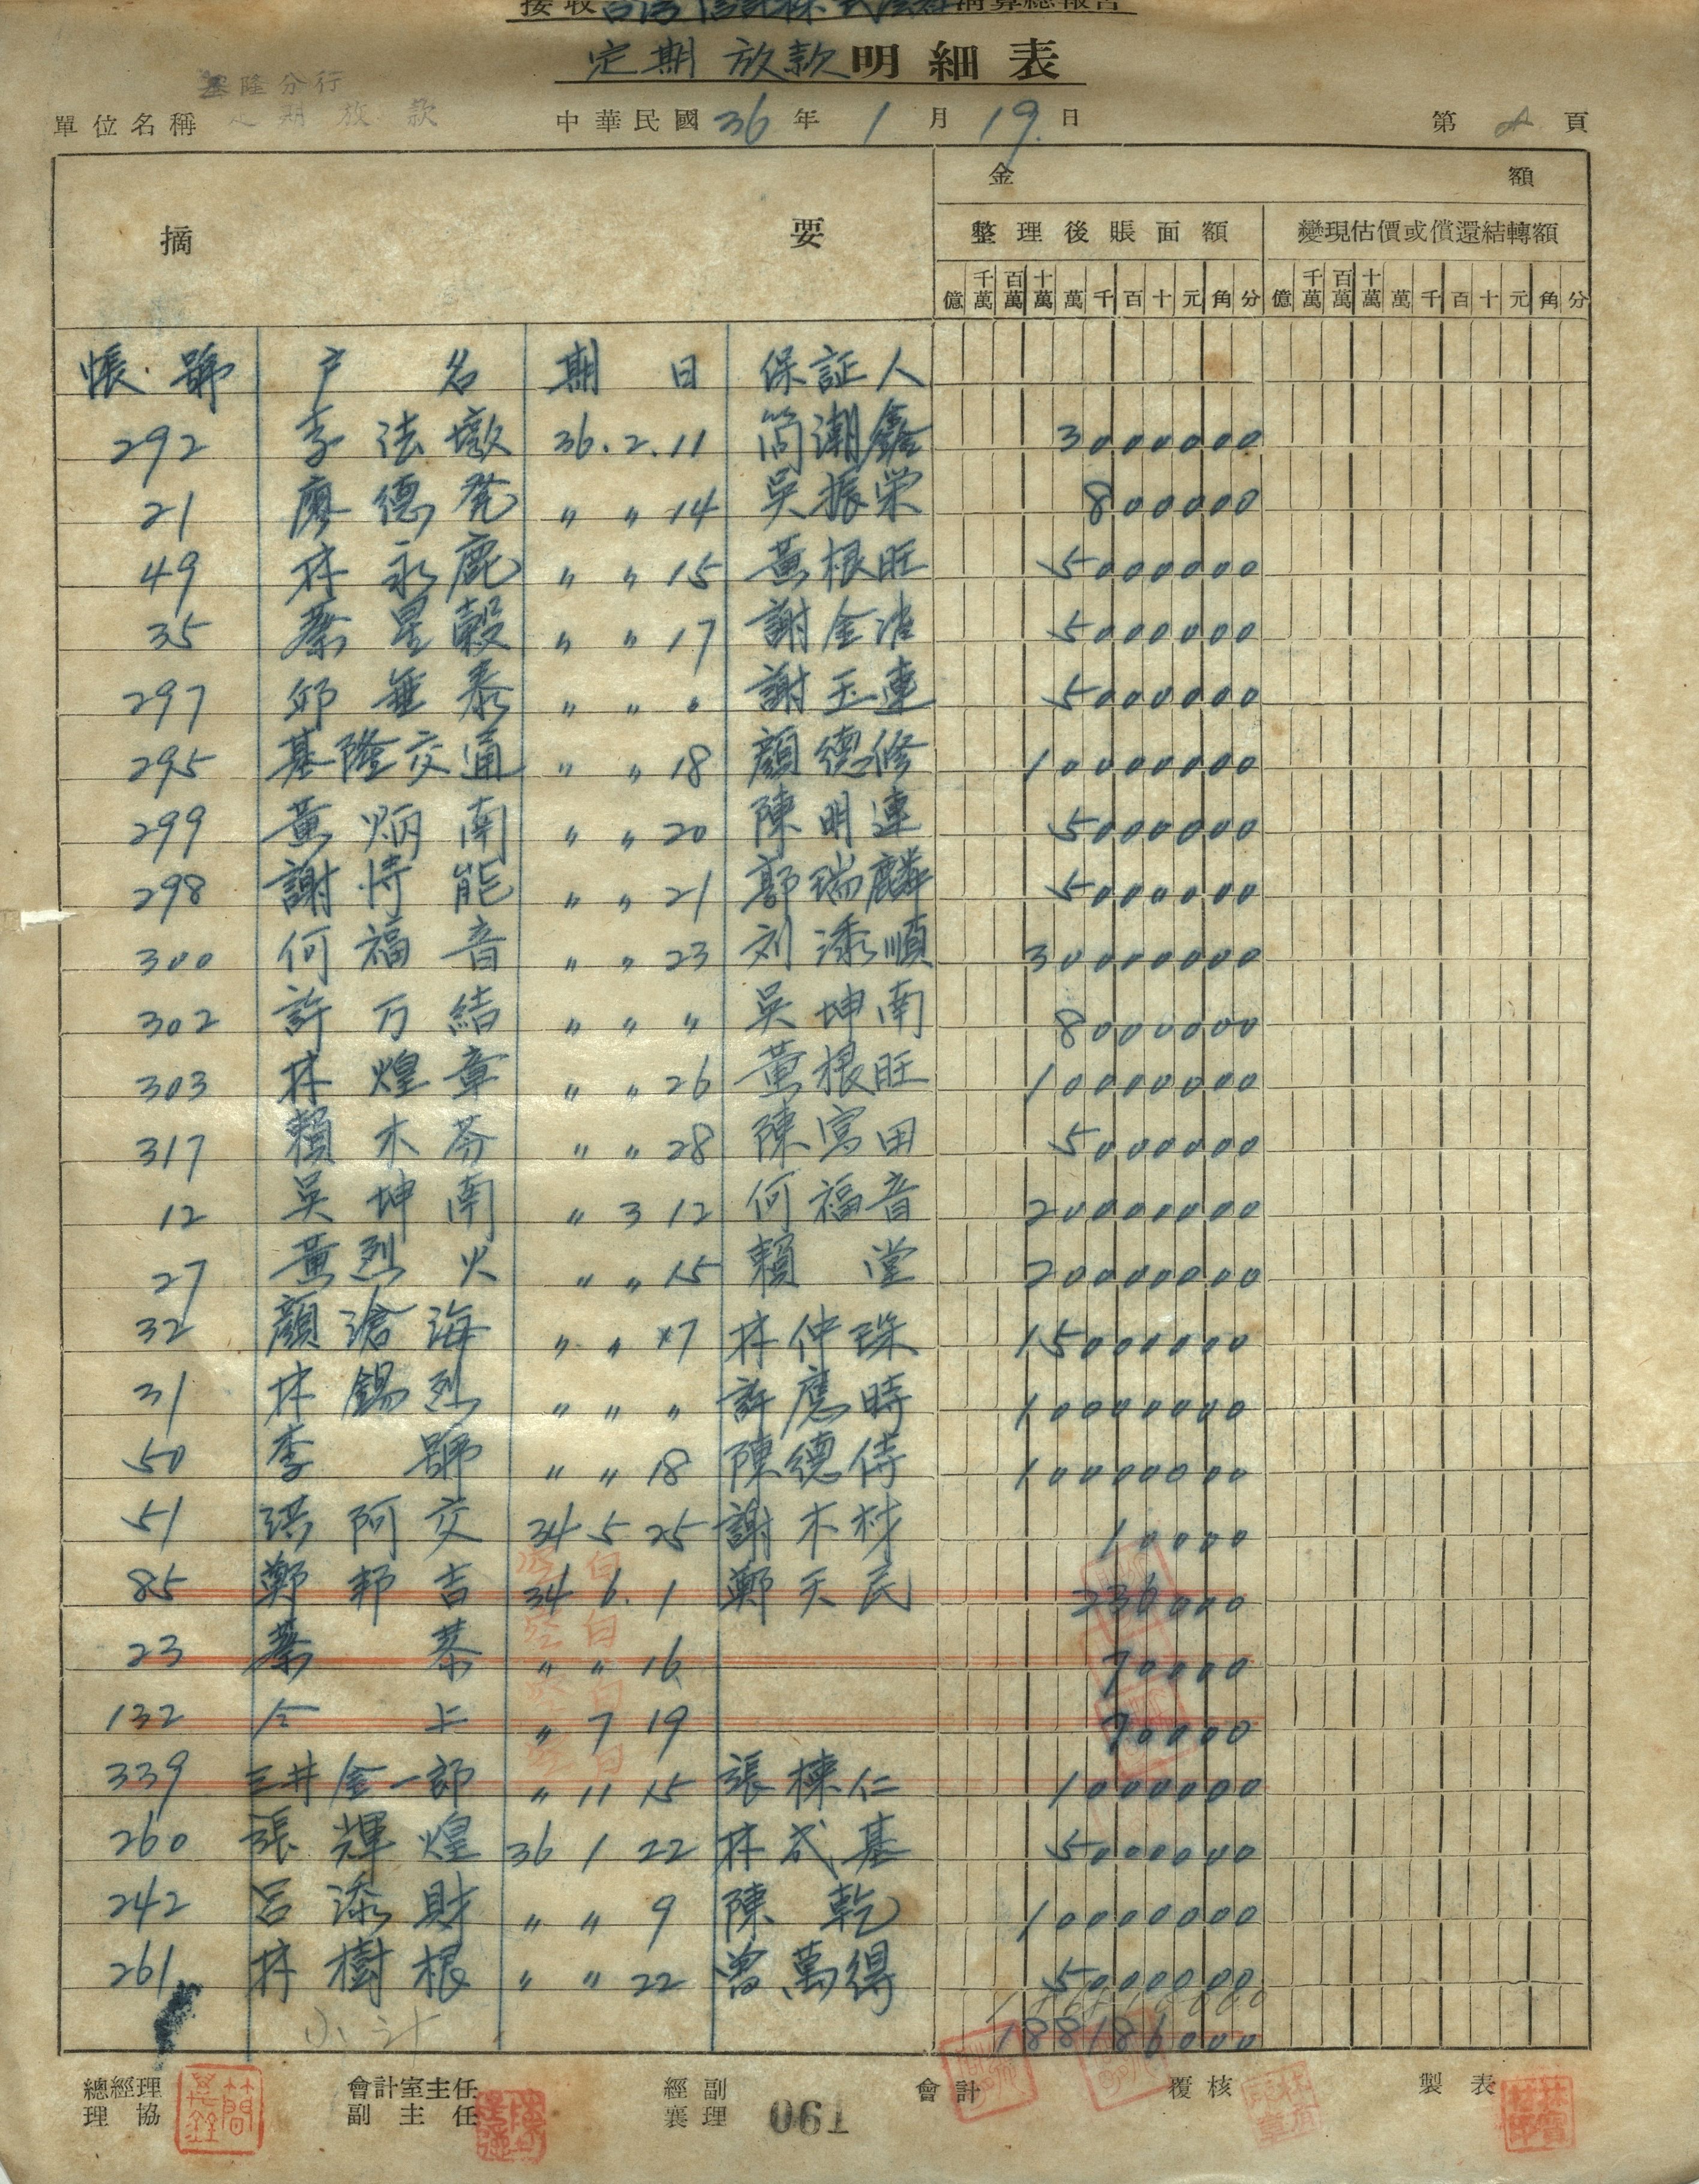 接收台湾信託株式会社清算總報告
定期放款明細表
基隆分行
單位名稱 定期放款 中華民國36年1月19日 第 頁
金額
摘要 整理後賬面額 變現估價或償還結轉額
億 千萬 百萬 十萬 萬 千 百 十 元 角 分 億 千萬 百萬 十萬 萬 千 百 十 元 角 分
帳號 戶名 期日 保証人
292 李法墩 36.2.11 簡潮鑫 3000000
21 廖德発 〃 〃 14 吳振栄 800000
49 林永鹿 〃 〃 15 黃根旺 5000000
35 蔡星穀 〃 〃 17 謝金准 5000000
297 邱垂泰 〃 〃 〃 謝玉連 5000000
295 基隆交通 〃 〃 18 顏德修 10000000
299 黃炳南 〃 〃 20 陳明連 5000000
298 謝恃能 〃 〃 21 郭瑞麟 5000000
300 何福音 〃 〃 23 刘添順 30000000
302 許万結 〃 〃 〃 吳坤南 8000000
303 林煌章 〃 〃 26 黃根旺 10000000
317 賴木芬 〃 〃 28 陳富田 5000000
12 吳坤南 〃 3 12 何福音 20000000
27 黃烈火 〃 〃 15 賴堂 20000000
32 顏滄海 〃 〃 17 林仲珠 15000000
31 林錫烈 〃 〃 〃 許應時 10000000
50 李號 〃 〃 18 陳德侍 10000000
51 洪阿交 34 5 25 謝木材 10000
85 鄭邦吉 34 6.1 鄭天民 236000
23 蔡恭 〃 〃 16 70000
132 仝上 〃 7 19 70000
339 三井金一郎 〃 11 15 張棟仁 1000000
260 張輝煌 36 1 22 林成基 5000000
242 呂添財 〃 〃 9 陳乾 10000000
261 林樹根 〃 〃 22 曾萬得 5000000
小計 188186000
總經理 會計室主任 經副 會計 覆核 製表
理協 副主任 襄理 061